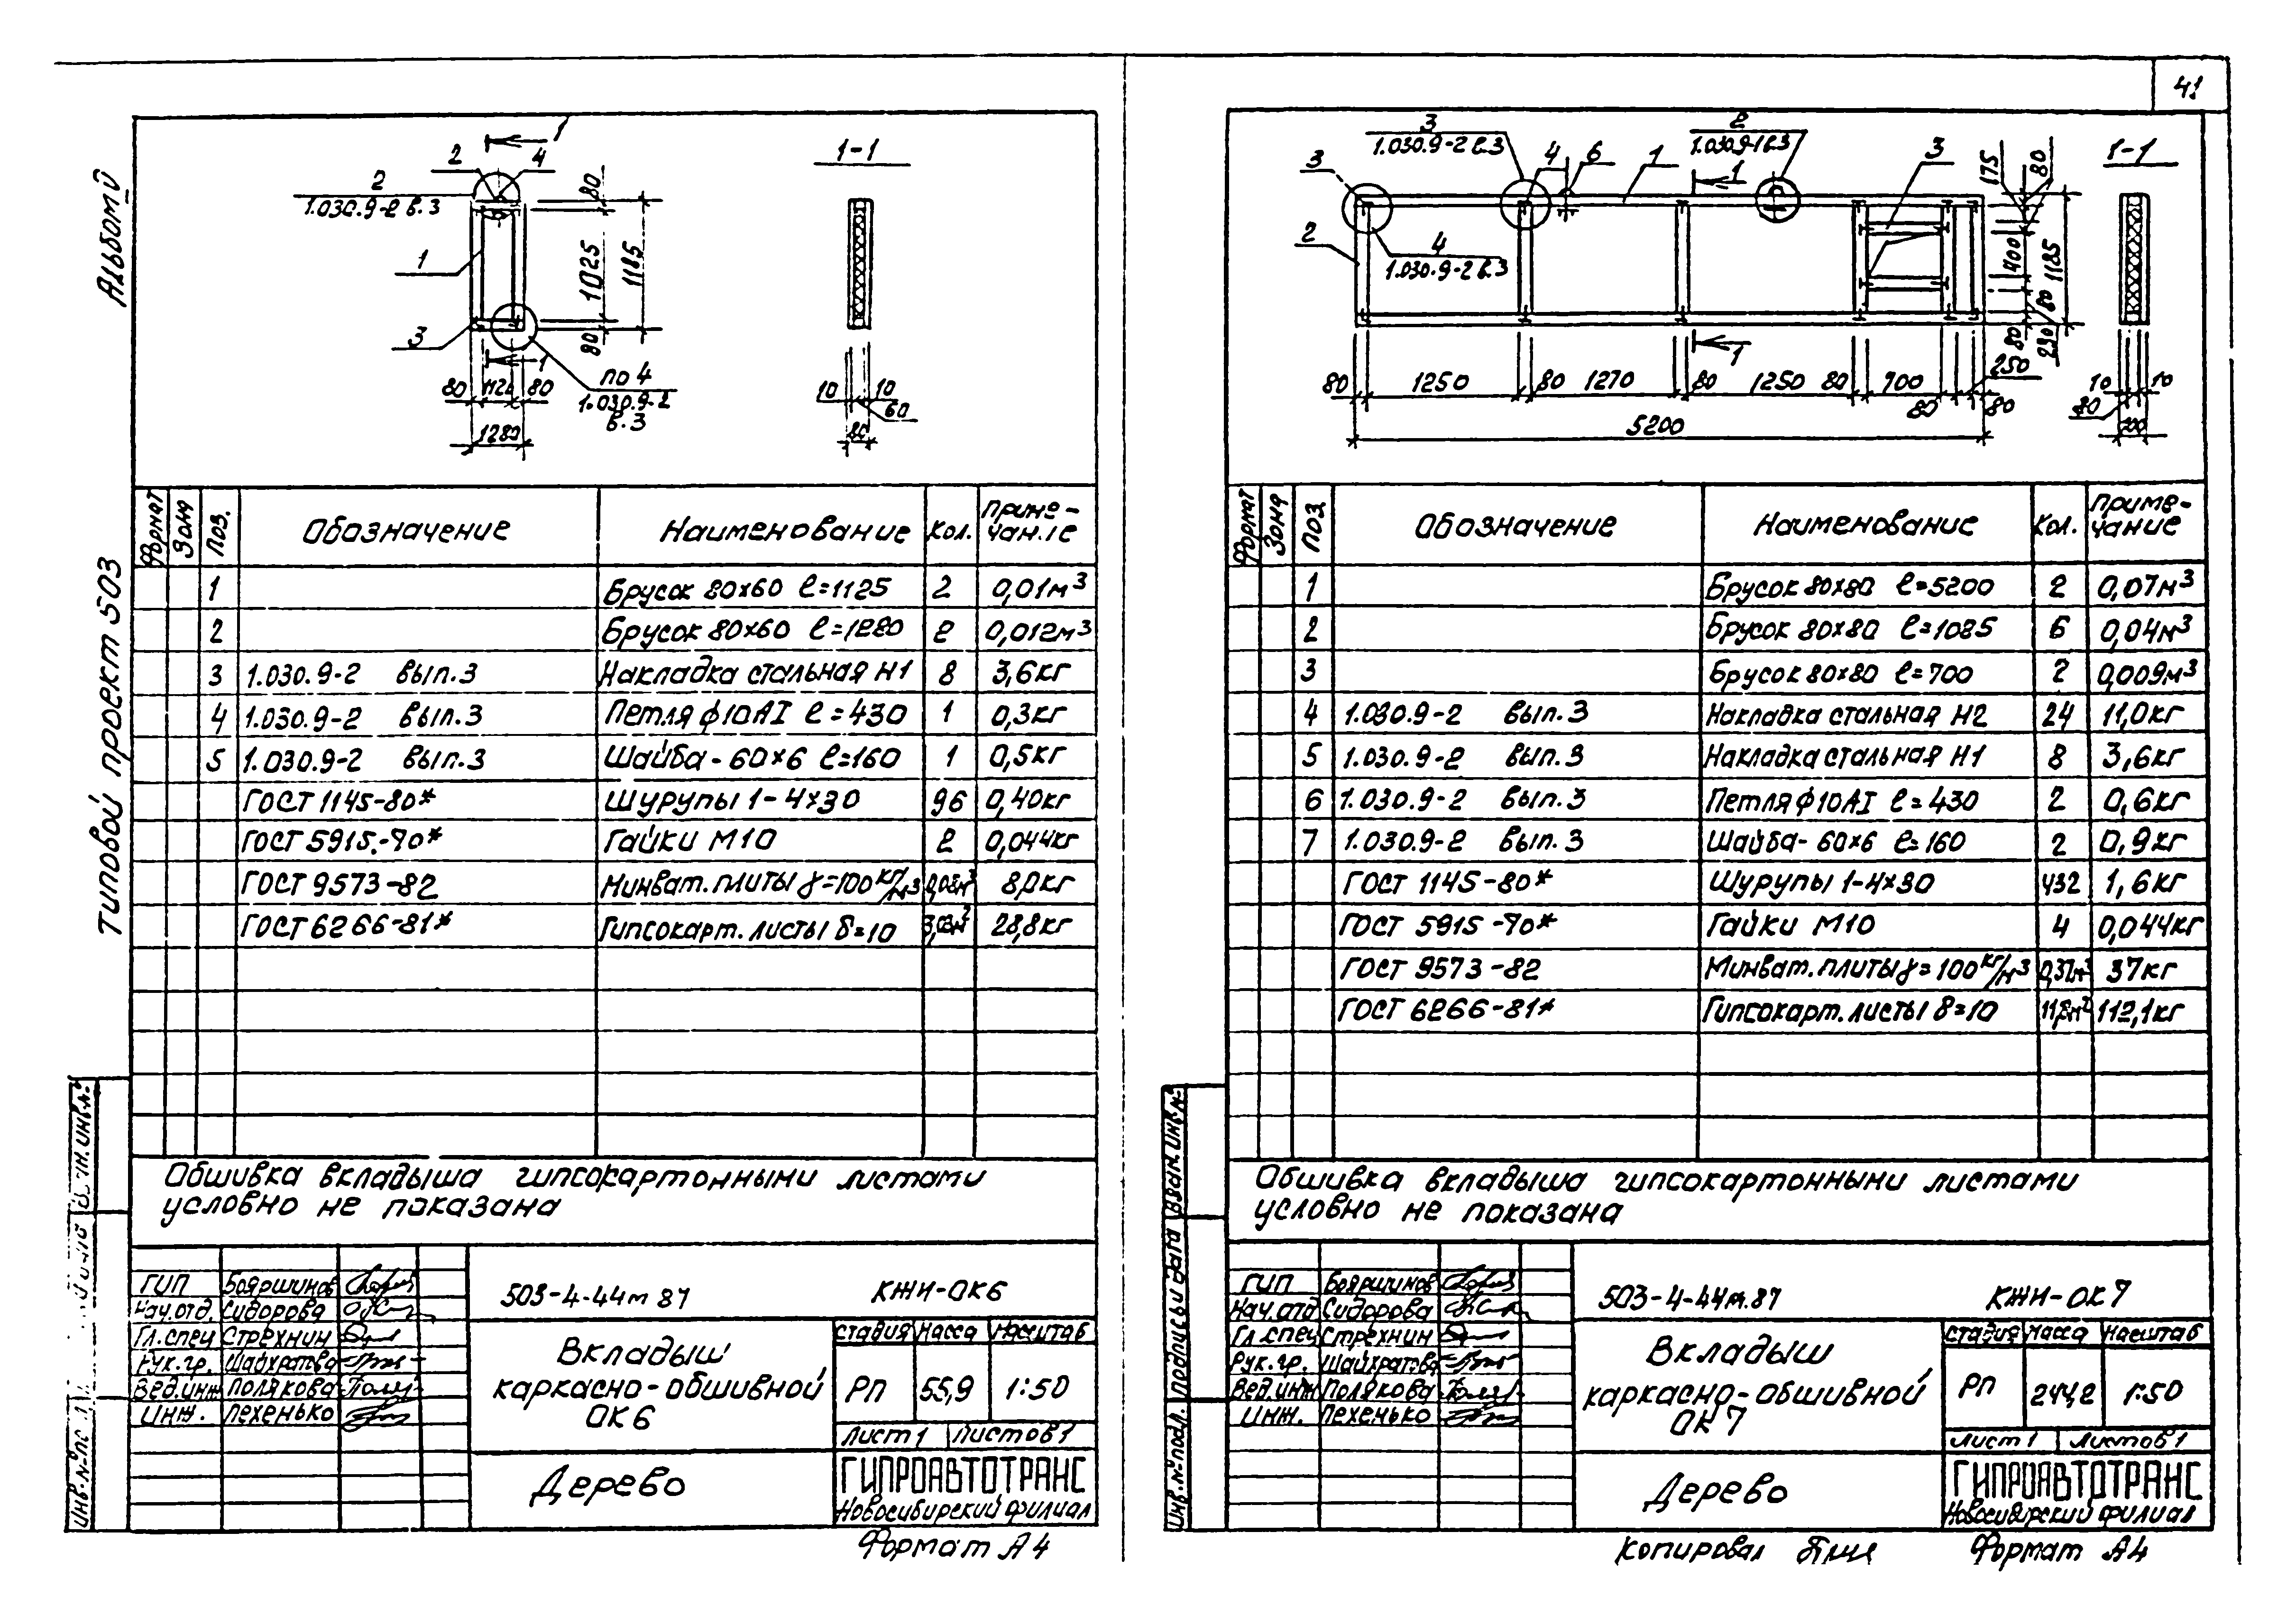 41
Альбом V
Типовой проект 503
1
2
4
1-1
2
1.030.9-2 в.3
80
1
1025
1185
3
80
1
80
1120
80
по 4
1.030.9-2
в.3
1280
10
10
60
80
Формат
Зона
Поз.
Обозначение
Наименование
Кол.
Приме-
чание
1 Брусок 80х60 ℓ=1125 2 0,01м³
2 Брусок 80х60 ℓ=1280 2 0,012м³
3 1.030.9-2 вып.3 Накладка стальная Н1 8 3,6кг
4 1.030.9-2 вып.3 Петля ф10АI ℓ=430 1 0,3кг
5 1.030.9-2 вып.3 Шайба-60х6 ℓ=160 1 0,5кг
ГОСТ 1145-80* Шурупы 1-4х30 96 0,40кг
ГОСТ 5915-70* Гайки М10 2 0,044кг
ГОСТ 9573-82 Минват.плиты γ=100кг/м³ 0,08м³ 8,0кг
ГОСТ 6266-81* Гипсокарт.листы δ=10 3,03м² 28,8кг
Обшивка вкладыша гипсокартонными листами
условно не показана
ГИП Бояршинов
Нач.отд. Сидорова
Гл.спец Стрехнин
Рук.гр. Шайхратова
Вед.инж Полякова
Инж. Пехенько
503-4-44м 87 КЖИ-ОК6
Вкладыш
каркасно-обшивной
ОК6
Стадия Масса Масштаб
РП 55,9 1:50
Лист 1 Листов 1
Дерево
ГИПРОАВТОТРАНС
Новосибирский филиал
Формат А4
3
1.030.9-2 в.3
2
1.030.9-1 в.3
3
4
6
1
1
3
175
80
1-1
2
4
1.030.9-2 в.3
400
1185
80
80
290
1
80
1250
80
1270
80
1250
80
700
80
250
80
5200
10
10
80
100
Формат
Зона
Поз.
Обозначение
Наименование
Кол.
Приме-
чание
1 Брусок 80х80 ℓ=5200 2 0,07м³
2 Брусок 80х80 ℓ=1025 6 0,04м³
3 Брусок 80х80 ℓ=700 2 0,009м³
4 1.030.9-2 вып.3 Накладка стальная Н2 24 11,0кг
5 1.030.9-2 вып.3 Накладка стальная Н1 8 3,6кг
6 1.030.9-2 вып.3 Петля ф10АI ℓ=430 2 0,6кг
7 1.030.9-2 вып.3 Шайба-60х6 ℓ=160 2 0,9кг
ГОСТ 1145-80* Шурупы 1-4х30 432 1,6кг
ГОСТ 5915-70* Гайки М10 4 0,044кг
ГОСТ 9573-82 Минват.плиты γ=100кг/м³ 0,37м³ 37кг
ГОСТ 6266-81* Гипсокарт.листы δ=10 11,8м² 112,1кг
Обшивка вкладыша гипсокартонными листами
условно не показана
Инв.№подл. Подпись и дата Взам.инв.№
ГИП Бояршинов
Нач.отд Сидорова
Гл.спец Стрехнин
Рук.гр. Шайхратова
Вед.инж Полякова
Инж. Пехенько
503-4-44м.87 КЖИ-ОК7
Вкладыш
каркасно-обшивной
ОК7
Стадия Масса Масштаб
РП 244,2 1:50
Лист 1 Листов 1
Дерево
ГИПРОАВТОТРАНС
Новосибирский филиал
Копировал Формат А4